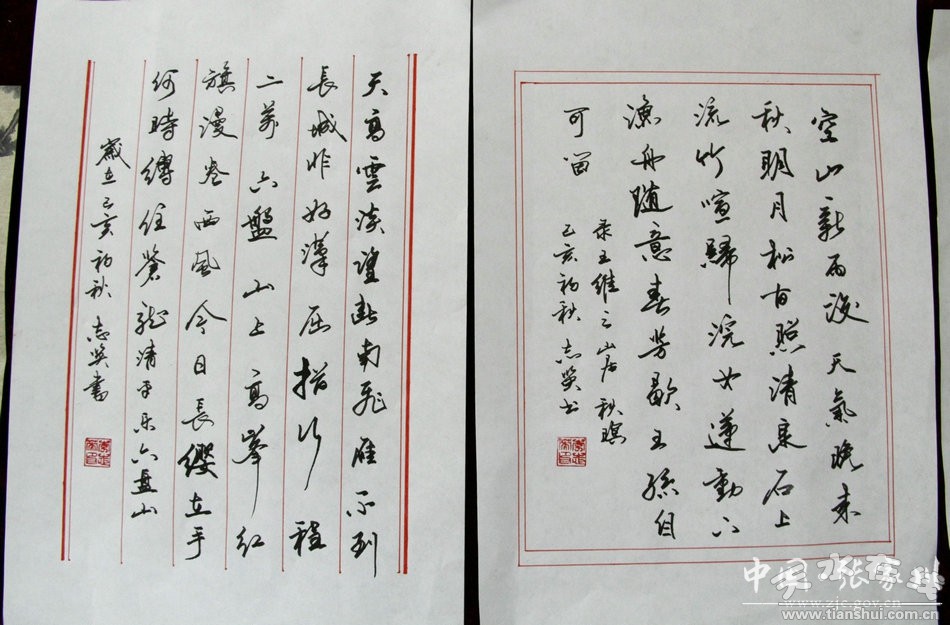 天高雲淡望斷南飛雁不到
長城非好漢屈指行程
二萬六盤山上高峯紅
旗漫卷西風今日長纓在手
何時縛住蒼龍清平樂六盤山
歲在己亥初秋志書
空山新雨後天氣晚來
秋明月松間照清泉石上
流竹喧歸浣女蓮動下
漁舟隨意春芳歇王孫自
可留
录王維之山居秋暝
己亥初秋志书
中国天水·张家川
www.zjc.gov.cn
www.tianshui.com.cn